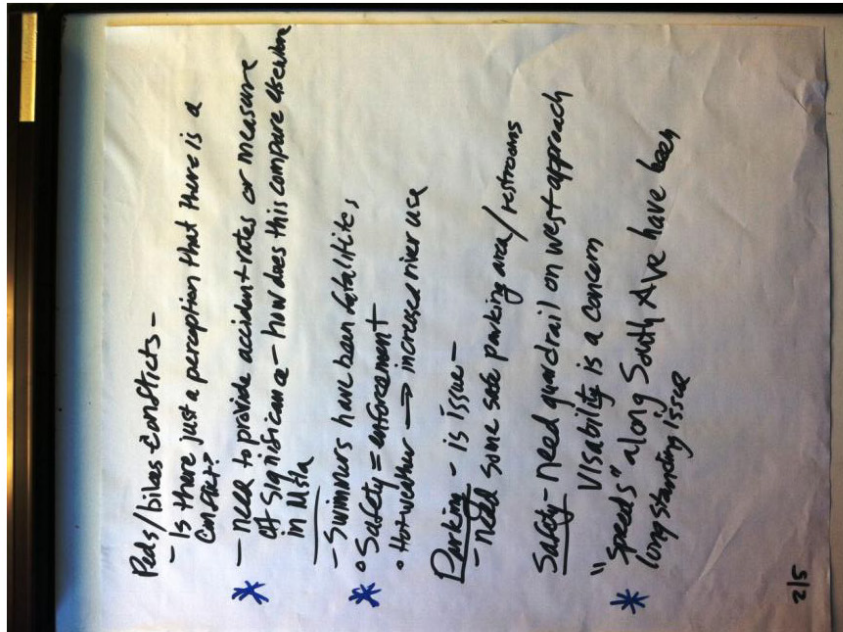 Peds/bikes & conflicts -
- Is there just a perception that there is a
conflict?
* - need to provide accident rates or measure
of significance - how does this compare elsewhere
in Msla
- Swimmers have been fatalities
* • Safety = enforcement
• Hot weather → increased river use
Parking - is issue -
- need some safe parking area/restrooms
Safety - need guardrail on west approach
Visability is a concern
* "Speeds" along South Ave have been
long standing issue
2/5